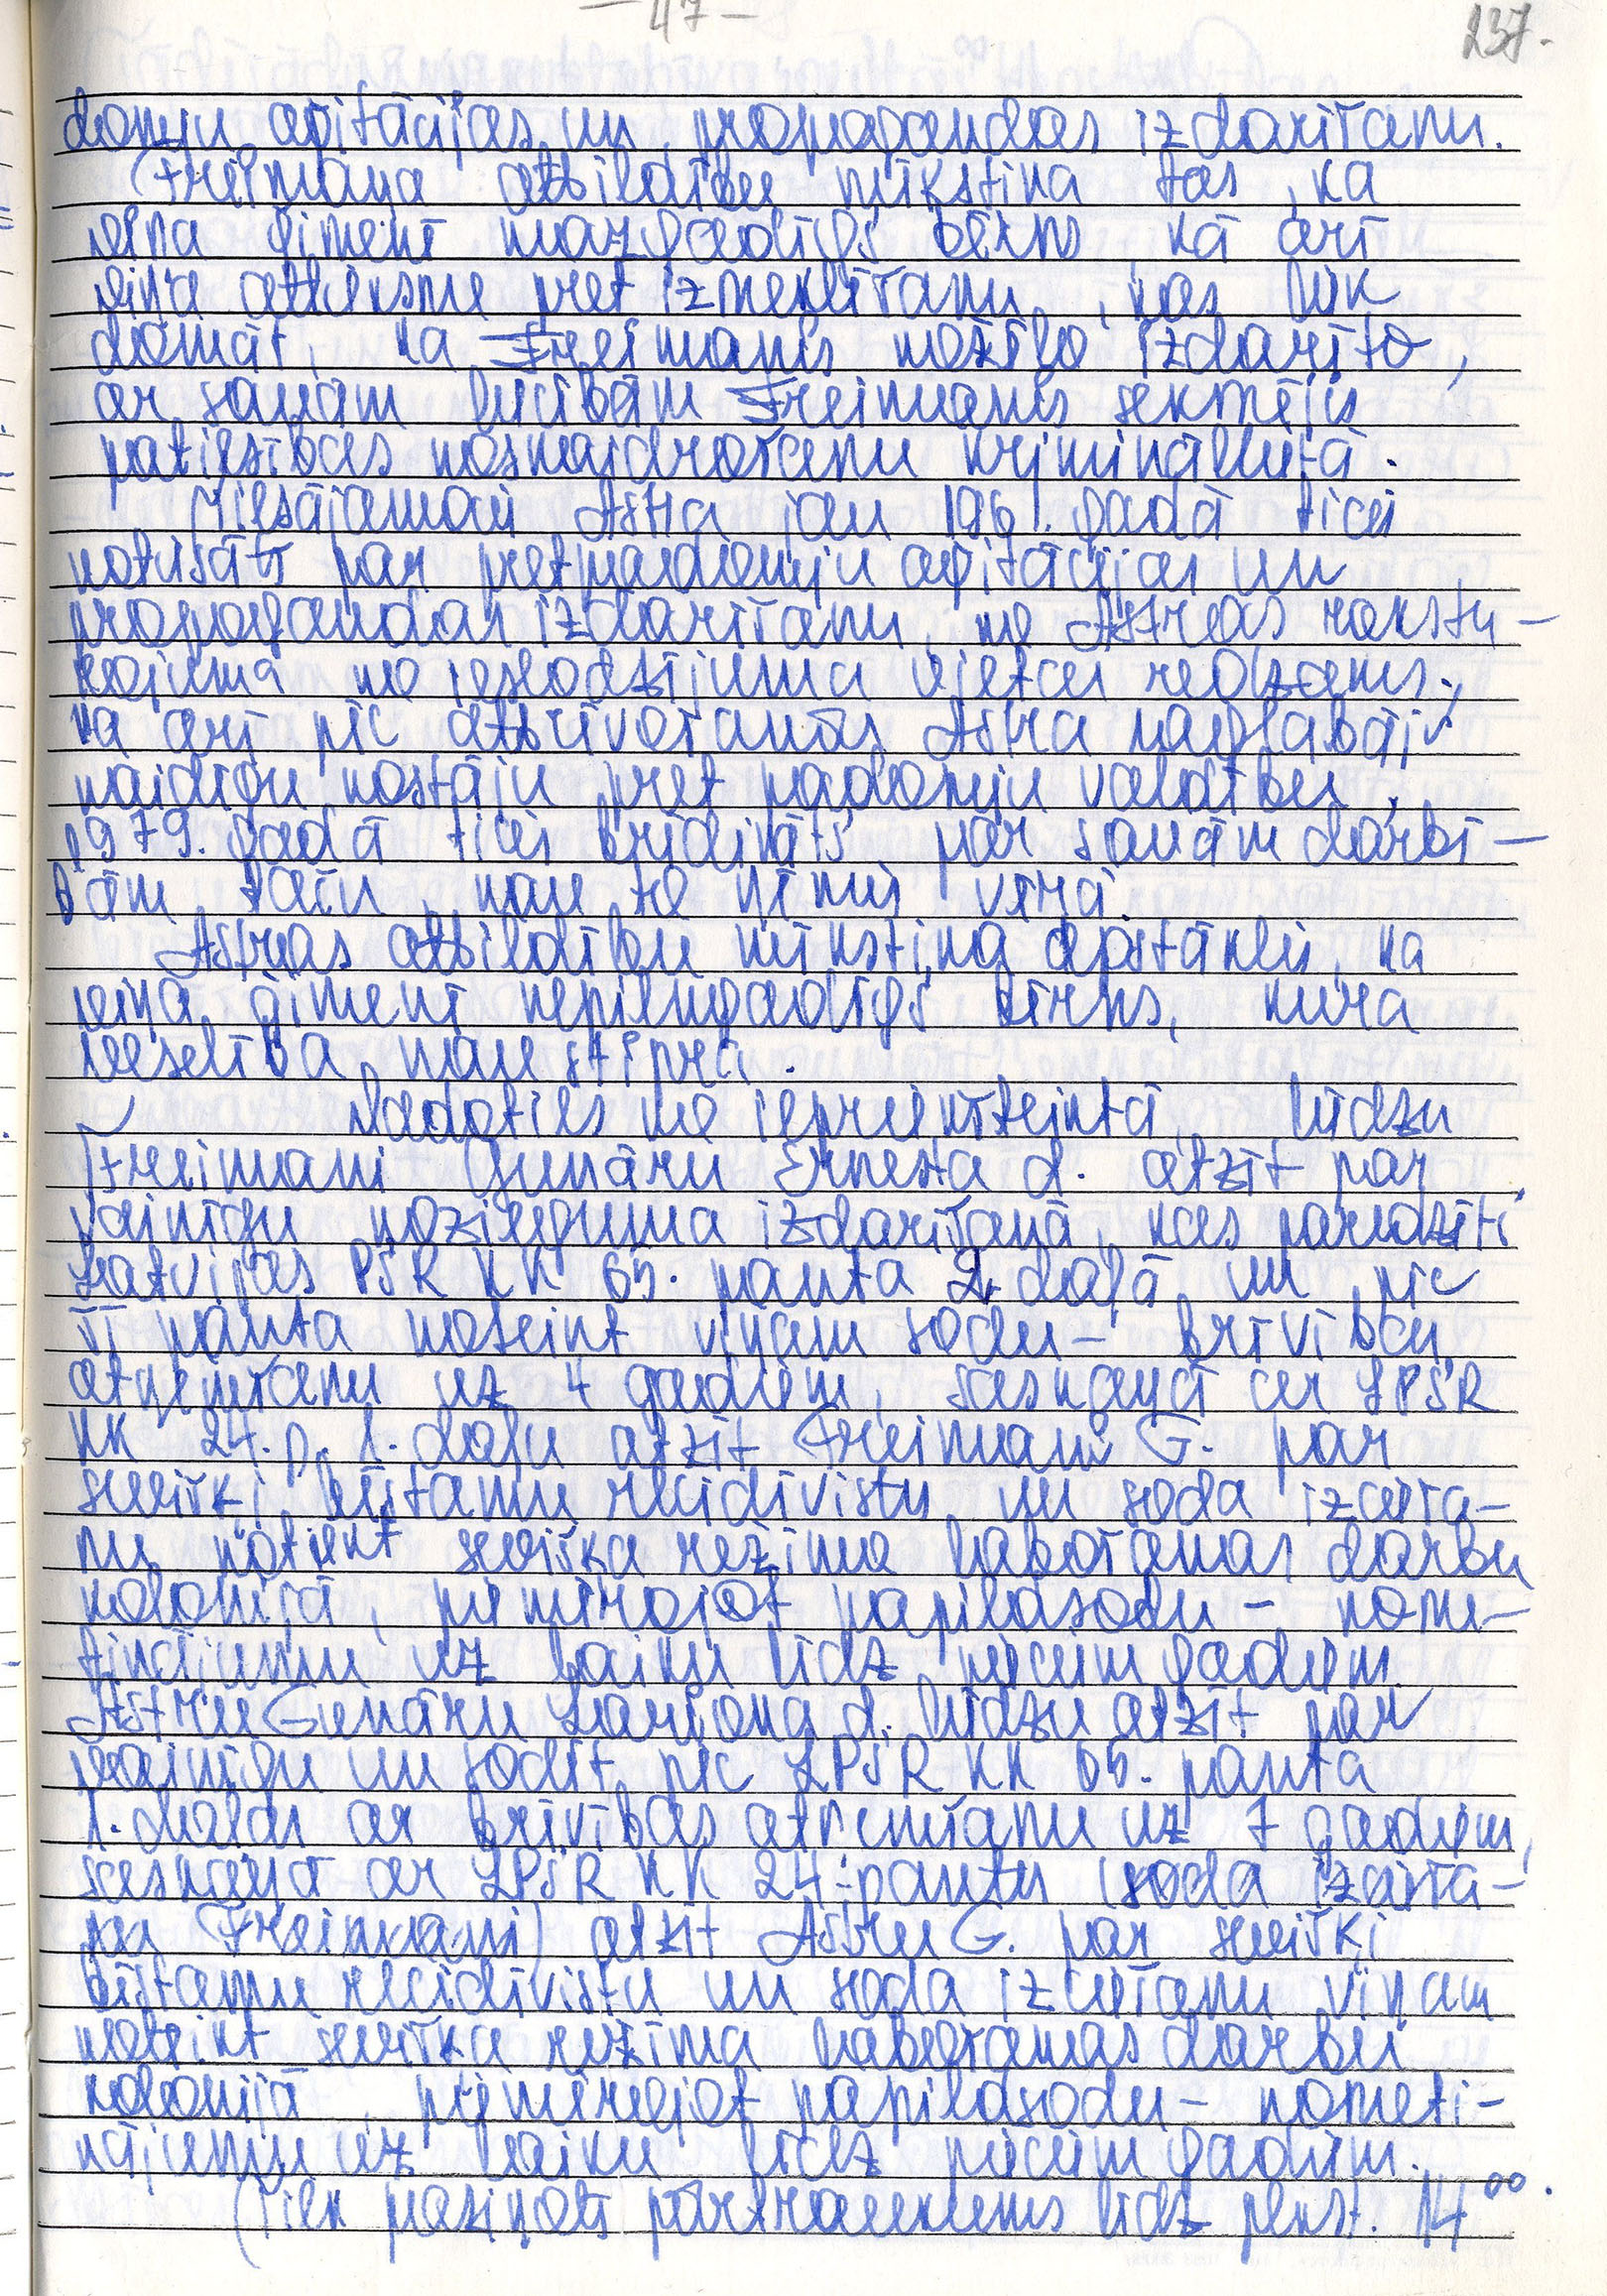 — 47 —
237.
domju agitācijas un propagandas izdarīšanu.
Freimaņa atbildību mīkstina tas, ka
viņa ģimenē mazgadīgs bērns, kā arī
viņa attieksme pret izmeklēšanu, kas liek
domāt, ka Freimanis nožēlo izdarīto,
ar savām liecībām Freimanis sekmējis
patiesības noskaidrošanu krimināllietā.
Tiesājamais Astra jau 1961. gadā ticis
notiesāts par pretpadomju agitācijas un
propagandas izdarīšanu, no Astras rakstu-
rojuma no ieslodzījuma vietas redzams,
ka arī pēc atbrīvošanās Astra saglabājis
naidīgu nostāju pret padomju valdību,
1979. gadā ticis brīdināts par savām darbī-
bām taču nav to ņēmis vērā.
Astras atbildību mīkstina apstāklis, ka
viņa ģimenē nepilngadīgs bērns, kura
veselība nav stipra.
Vadoties no iepriekšteiktā, lūdzu
Freimani Gunāru Ernesta d. atzīt par
vainīgu nozieguma izdarīšanā, kas paredzēti
Latvijas PSR KK 65. panta 2. daļā un pēc
šī panta noteikt viņam sodu – brīvības
atņemšanu uz 4 gadiem, saskaņā ar LPSR
KK 24. p. 1. daļu atzīt Freimani G. par
sevišķi bīstamu recidīvistu un soda izcieša-
nu noteikt sevišķa režīma labošanas darbu
kolonijā, piemērojot papildsodu – nome-
tinājumu uz laiku līdz pieciem gadiem.
Astru Gunāru Lariona d. lūdzu atzīt par
vainīgu un sodīt pēc LPSR KK 65. panta
1. daļas ar brīvības atņemšanu uz 7 gadiem,
saskaņā ar LPSR KK 24. pantu (soda izcieša-
Freimani) atzīt Astru G. par sevišķi
bīstamu recidīvistu un soda izciešanu viņam
noteikt sevišķa režīma labošanas darbu
kolonijā, piemērojot papildsodu – nometi-
nājumu uz laiku līdz pieciem gadiem.
(Tiek paziņots pārtraukums līdz plkst. 14⁰⁰.